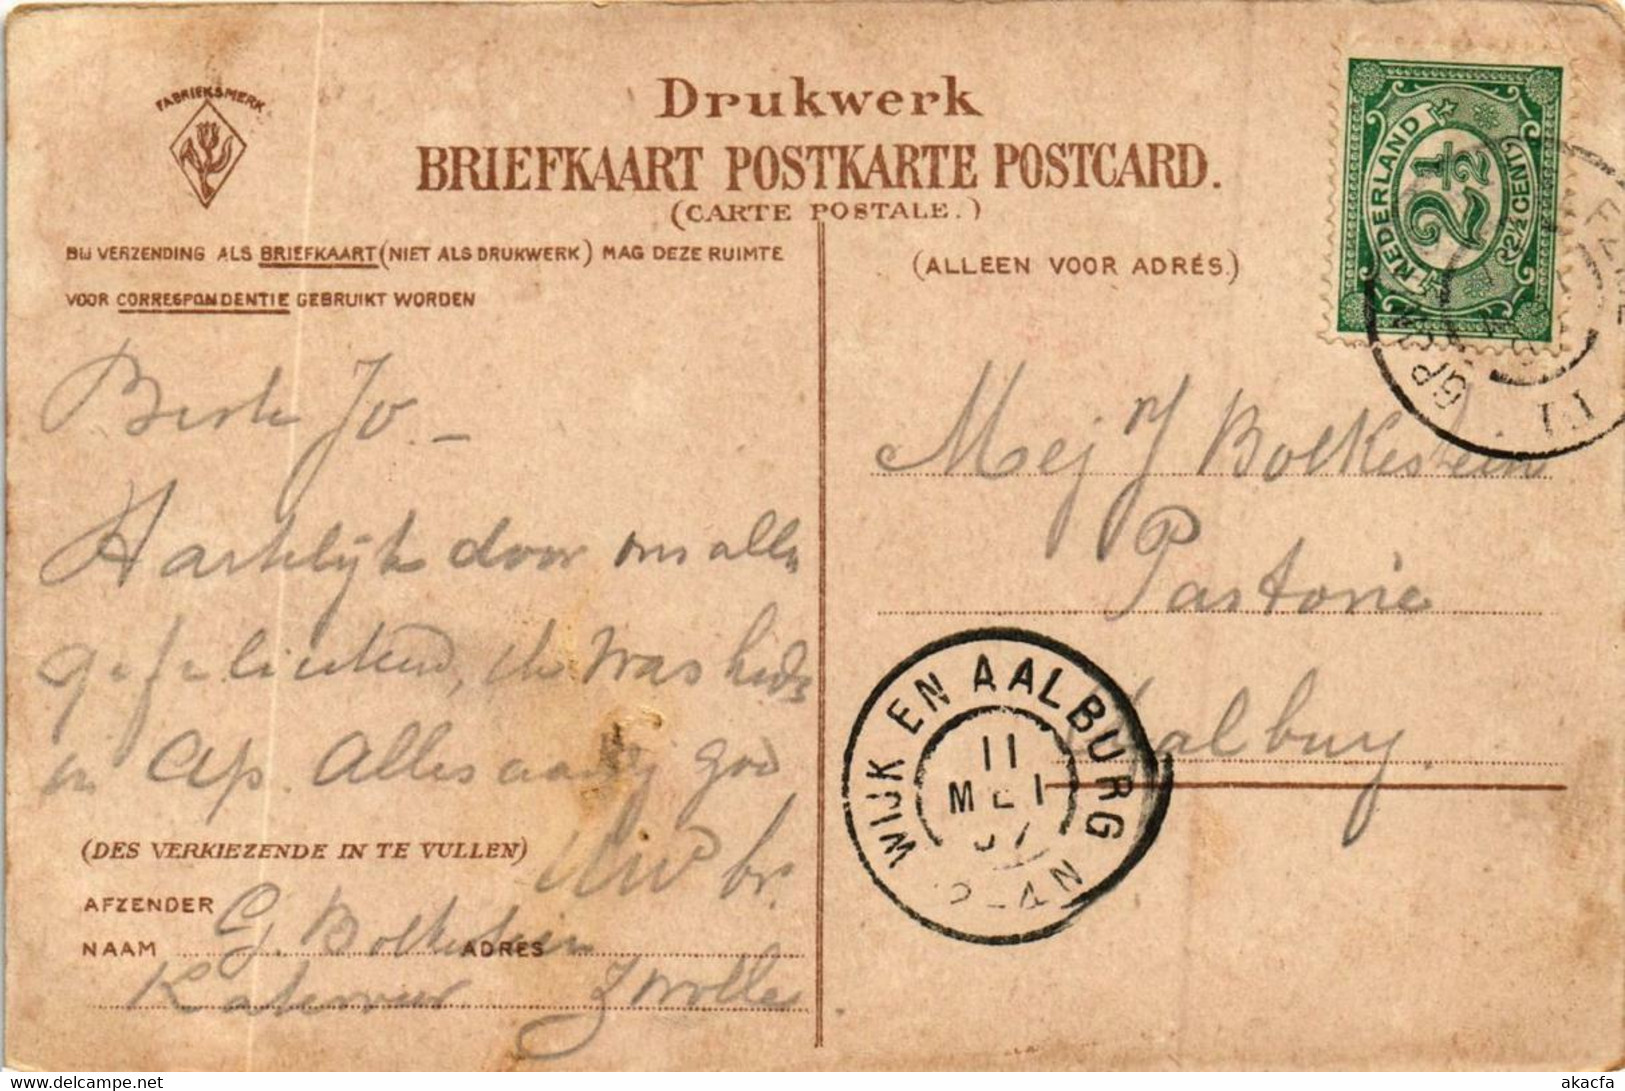 FABRIEKSMERK
Drukwerk
BRIEFKAART POSTKARTE POSTCARD.
(CARTE POSTALE.)
BIJ VERZENDING ALS BRIEFKAART (NIET ALS DRUKWERK) MAG DEZE RUIMTE
VOOR CORRESPONDENTIE GEBRUIKT WORDEN
(ALLEEN VOOR ADRÉS.)
NEDERLAND
2½
2½ CENT
Beste Jo –
Hartelijk door ons allen
gefeliciteerd, was
en Alles goed
Uw br.
(DES VERKIEZENDE IN TE VULLEN)
AFZENDER
NAAM G. Bolkestein ADRES
Katerveer Zwolle
Mej J Bolkestein
Pastorie
Aalburg.
WIJK EN AALBURG
11
MEI
07